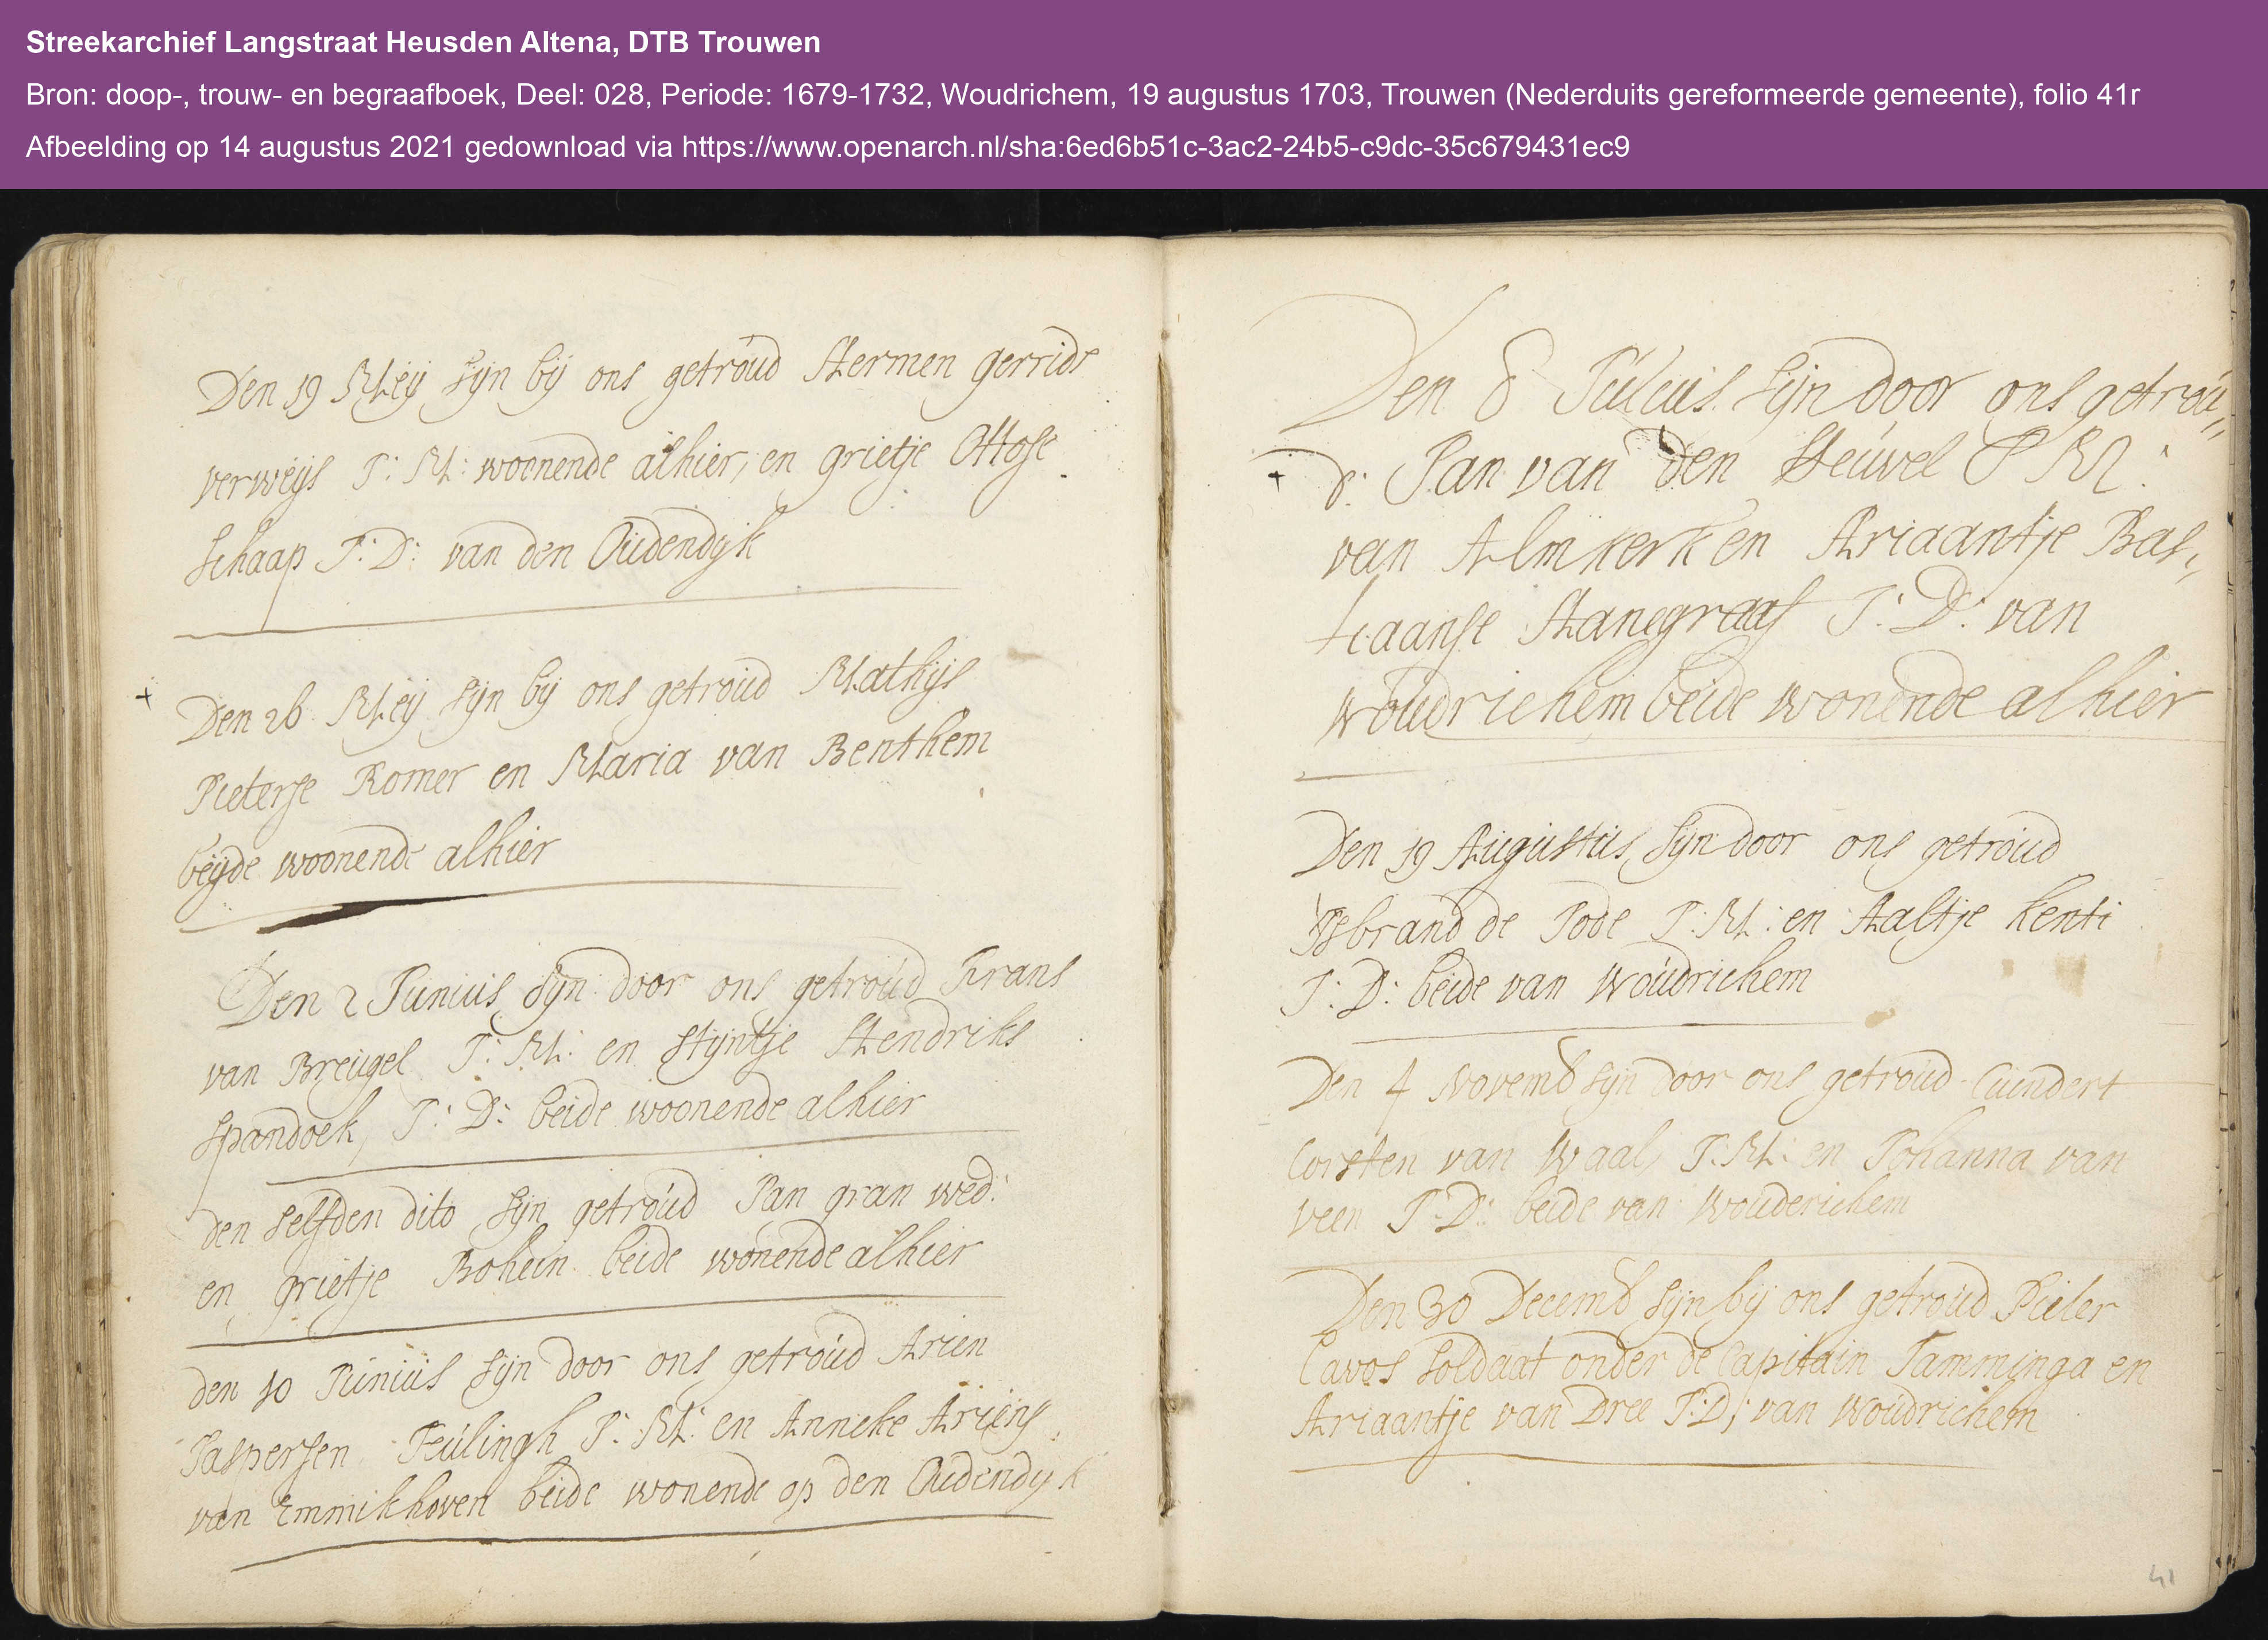 Streekarchief Langstraat Heusden Altena, DTB Trouwen
Bron: doop-, trouw- en begraafboek, Deel: 028, Periode: 1679-1732, Woudrichem, 19 augustus 1703, Trouwen (Nederduits gereformeerde gemeente), folio 41r
Afbeelding op 14 augustus 2021 gedownload via https://www.openarch.nl/sha:6ed6b51c-3ac2-24b5-c9dc-35c679431ec9
Den 19 Meij sijn bij ons getroud Hermen gerrids
verweijs J: M: woonende alhier, en grietje Ottose
schaap J: D: van den Oudendijk
Den 26 Meij sijn bij ons getroud Mathijs
Pieterse Romer en Maria van Benthem
beijde woonende alhier
Den 2 Junius sijn door ons getroud Frans
van Breugel J: M: en Stijntje Hendriks
Spandoek, J: D: beide woonende alhier
den selfden dito sijn getroud Jan gran wed:
en grietje Bohein beide wonende alhier
den 10 Junius sijn door ons getroud Arien
Jaspersen Teulingh J: M: en Anneke Ariens
van Emmikhoven beide wonende op den Oudendijk
Den 8 Julius sijn door ons getrou„
d: Jan van den Heuvel J M:
van Almkerk en Ariaantje Bas„
tiaanse Hanegraaf J: D: van
Woudrichem beide wonende alhier
Den 19 Augustus sijn door ons getroud
Isbrand de Jode J: M: en Aaltje Kenti
J: D: beide van Woudrichem
Den 4 Novemb sijn door ons getroud
Corsten van Waal, J: M: en Johanna van
veen J: D: beide van Wouderichem
Den 30 Decemb sijn bij ons getroud Pieter
Cavos soldaat onder de Capitain Tamminga en
Ariaantje van Dree J: D: van Woudrichem
41